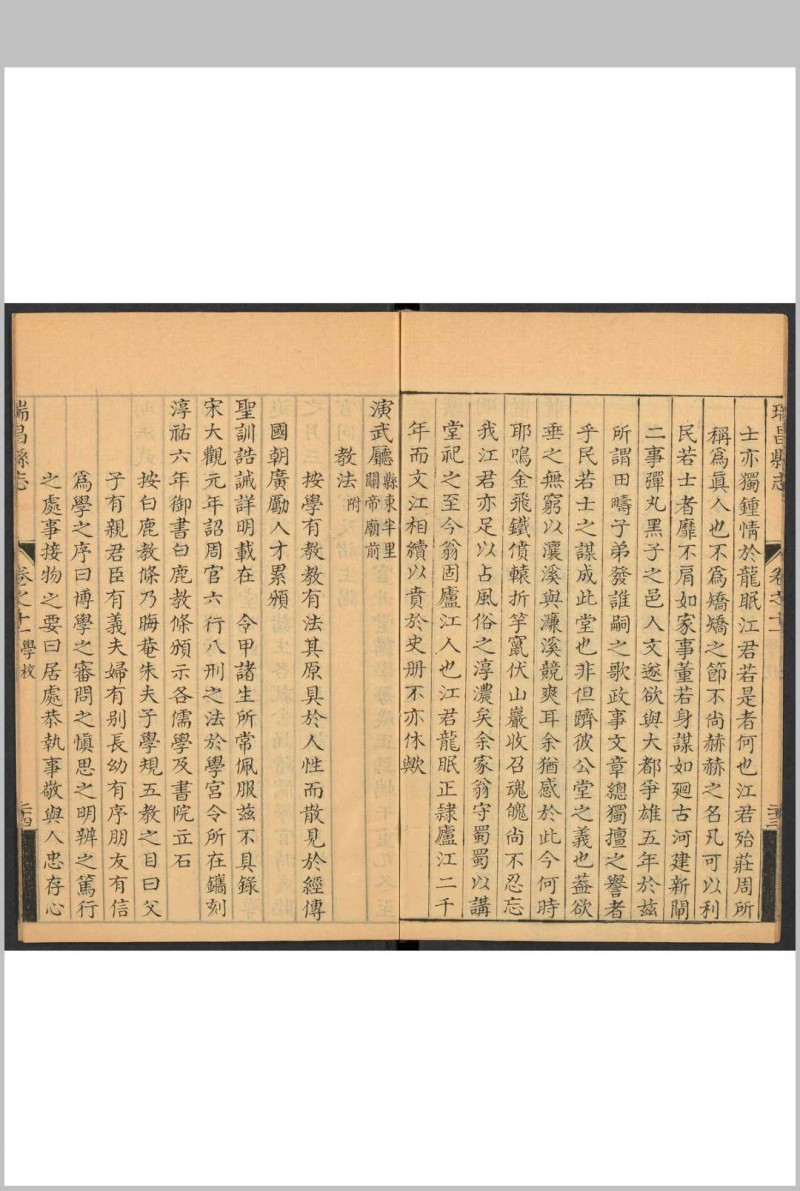 瑞昌縣志 卷之十一 二十三
士亦獨鍾情於龍眠江君若是者何也江君殆莊周所
稱爲眞人也不爲矯矯之節不尚赫赫之名凡可以利
民若士者靡不肩如家事董若身謀如廻古河建新閘
二事彈丸黑子之邑人文遂欲與大都爭雄五年於茲
所謂田疇子弟發誰嗣之歌政事文章總獨擅之譽者
乎民若士之謀成此堂也非但躋彼公堂之義也葢欲
垂之無窮以瀼溪與濂溪競爽耳余猶感於此今何時
耶鳴金飛鐵僨轅折竿竄伏山巖收召魂魄尚不忍忘
我江君亦足以占風俗之淳濃矣余家翁守蜀蜀以講
堂祀之至今翁固廬江人也江君龍眠正隷廬江二千
年而文江相續以賁於史册不亦休歟
演武廳縣東半里關帝廟前
教法附
按學有教教有法其原具於人性而散見於經傳
國朝廣勵人才累頒
聖訓誥誡詳明載在 令甲諸生所常佩服茲不具錄
宋大觀元年詔周官六行八刑之法於學宮令所在鑴刻
淳祐六年御書白鹿教條頒示各儒學及書院立石
按白鹿教條乃晦菴朱夫子學規五教之目曰父
子有親君臣有義夫婦有别長幼有序朋友有信
爲學之序曰博學之審問之愼思之明辨之篤行
之處事接物之要曰居處恭執事敬與人忠存心
瑞昌縣志 卷之十一 學校 二十四